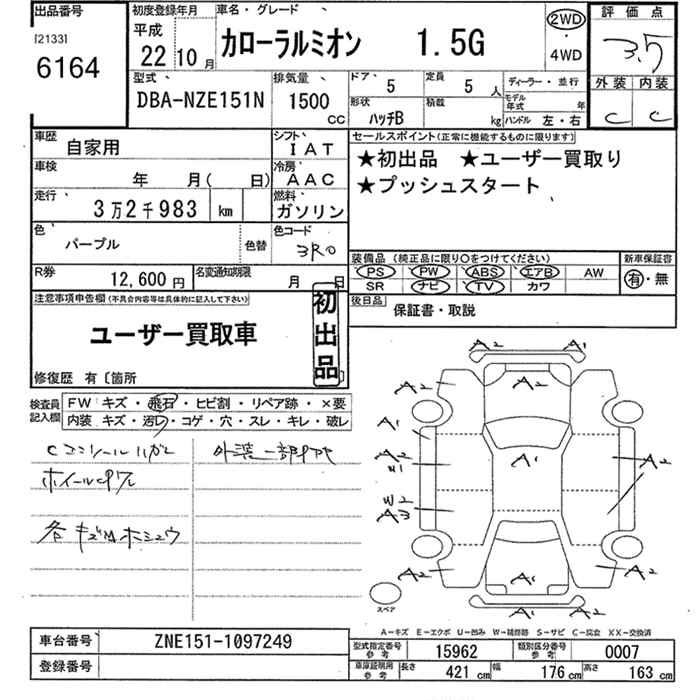 出品番号
[2133]
6164
初度登録年月
平成
22 10 月
車名・グレード
カローラルミオン 1.5G
2WD
・
4WD
評価点
3.5
外装 内装
C C
型式
DBA-NZE151N
排気量
1500
CC
ドア 5
定員 5 人
形状 ハッチB
積載 kg
ディーラー・並行
モデル年式 年
ハンドル 左・右
車歴 自家用
シフト IAT
車検 年 月( 日)
冷房 AAC
走行 3万2千983 km
燃料 ガソリン
色 パープル 色替
色コード 3R0
R券 12,600円
名変通知期限 月 日
セールスポイント(正常に機能するものに限ります)
★初出品 ★ユーザー買取り
★プッシュスタート
装備品(純正品に限り○をつけてください)
新車保証書
PS PW ABS エアB AW
SR ナビ TV カワ
有・無
後日品
保証書・取説
注意事項申告欄(不具合内容等は具体的に記入して下さい)
ユーザー買取車
初出品
修復歴 有〔箇所
検査員記入欄
FW キズ・飛石・ヒビ割・リペア跡・×要
内装 キズ・汚レ・コゲ・穴・スレ・キレ・破レ
Cコンソールハガレ
外装一部
ホイール
各キズ
A2 A1
A2 A2
A1
A2
W1
A1
A2
W2
A3
A2 A1 A2
A1
スペア
A-キズ E-エクボ U-凹み W-補修跡 S-サビ C-腐食 XX-交換済
車台番号 ZNE151-1097249
登録番号
型式指定番号 参考 15962
類別区分番号 参考 0007
車庫証明用 参考 長さ 421 cm 幅 176 cm 高さ 163 cm